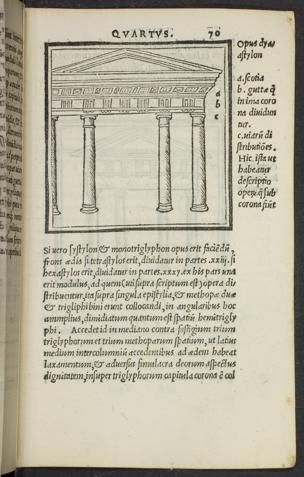 QVARTVS. 70
Opus dya/
astylon
a. scotia
b. guttæ q̃
in ima coro
na diuidun
tur.
c. uiarū di
stributiões.
Hic ista ut
habeatur
descriptio
operis q̃ sub
corona sũt
a
b
c
Si uero systylon & monotriglyphon opus erit faciēdū,
frons ædis si tetrastylos erit, diuidatur in partes .xxiij. si
hexastylos erit, diuidatur in partes .xxxv. ex his pars una
erit modulus, ad quem (ui supra scriptum est) opera di/
stribuentur, ita supra singula epistylia, & methopæ duæ
& triglyphi bini erunt collocandi, in angularibus hoc
ampliùs, dimidiatum quantum est spatiũ hemitrigly
phi. Accedet id in mediano contra fastigium trium
triglyphorum et trium methoparum spatium, ut latius
medium intercolumniũ accedentibus ad ædem habeat
laxamentum, & aduersus simulacra deorum aspectus
dignitatem, insuper triglyphorum capitula corona ē col